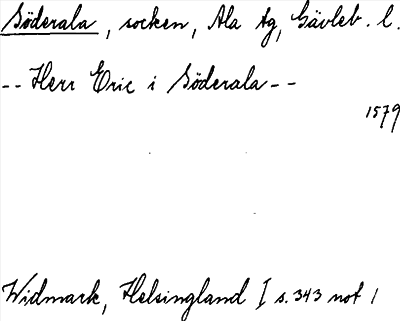 Söderala, socken, Ala tg, Gävleb. l.
-- Herr Eric i Söderala --
1579
Widmark, Helsingland I s. 343 not 1